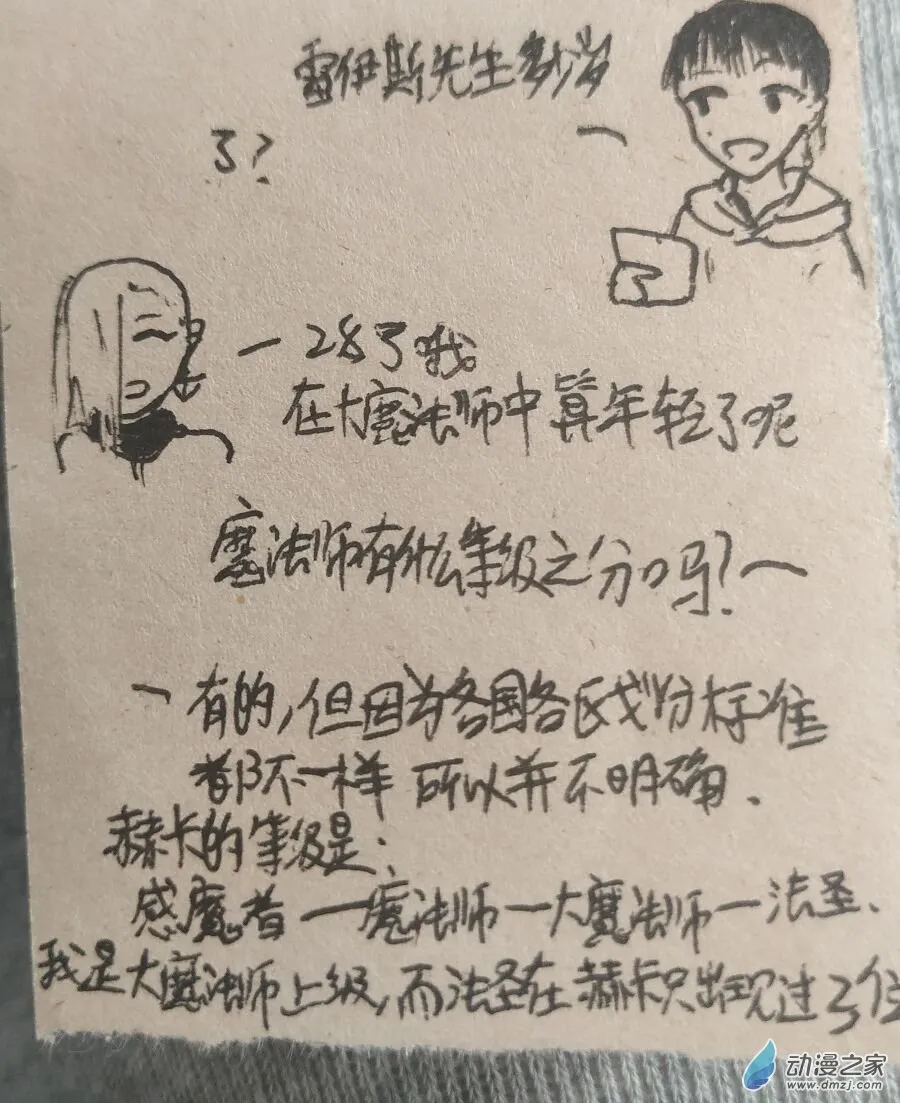 雷伊斯先生多少岁
了?
一28了哦。
在大魔法师中算年轻了呢
魔法师有什么等级之分吗?一
一有的,但因为各国各区划分标准
都不一样 所以并不明确.
赫卡的等级是:
感魔者一魔法师一大魔法师一法圣.
我是大魔法师上级,而法圣在赫卡只出现过3位
动漫之家
www.dmzj.com